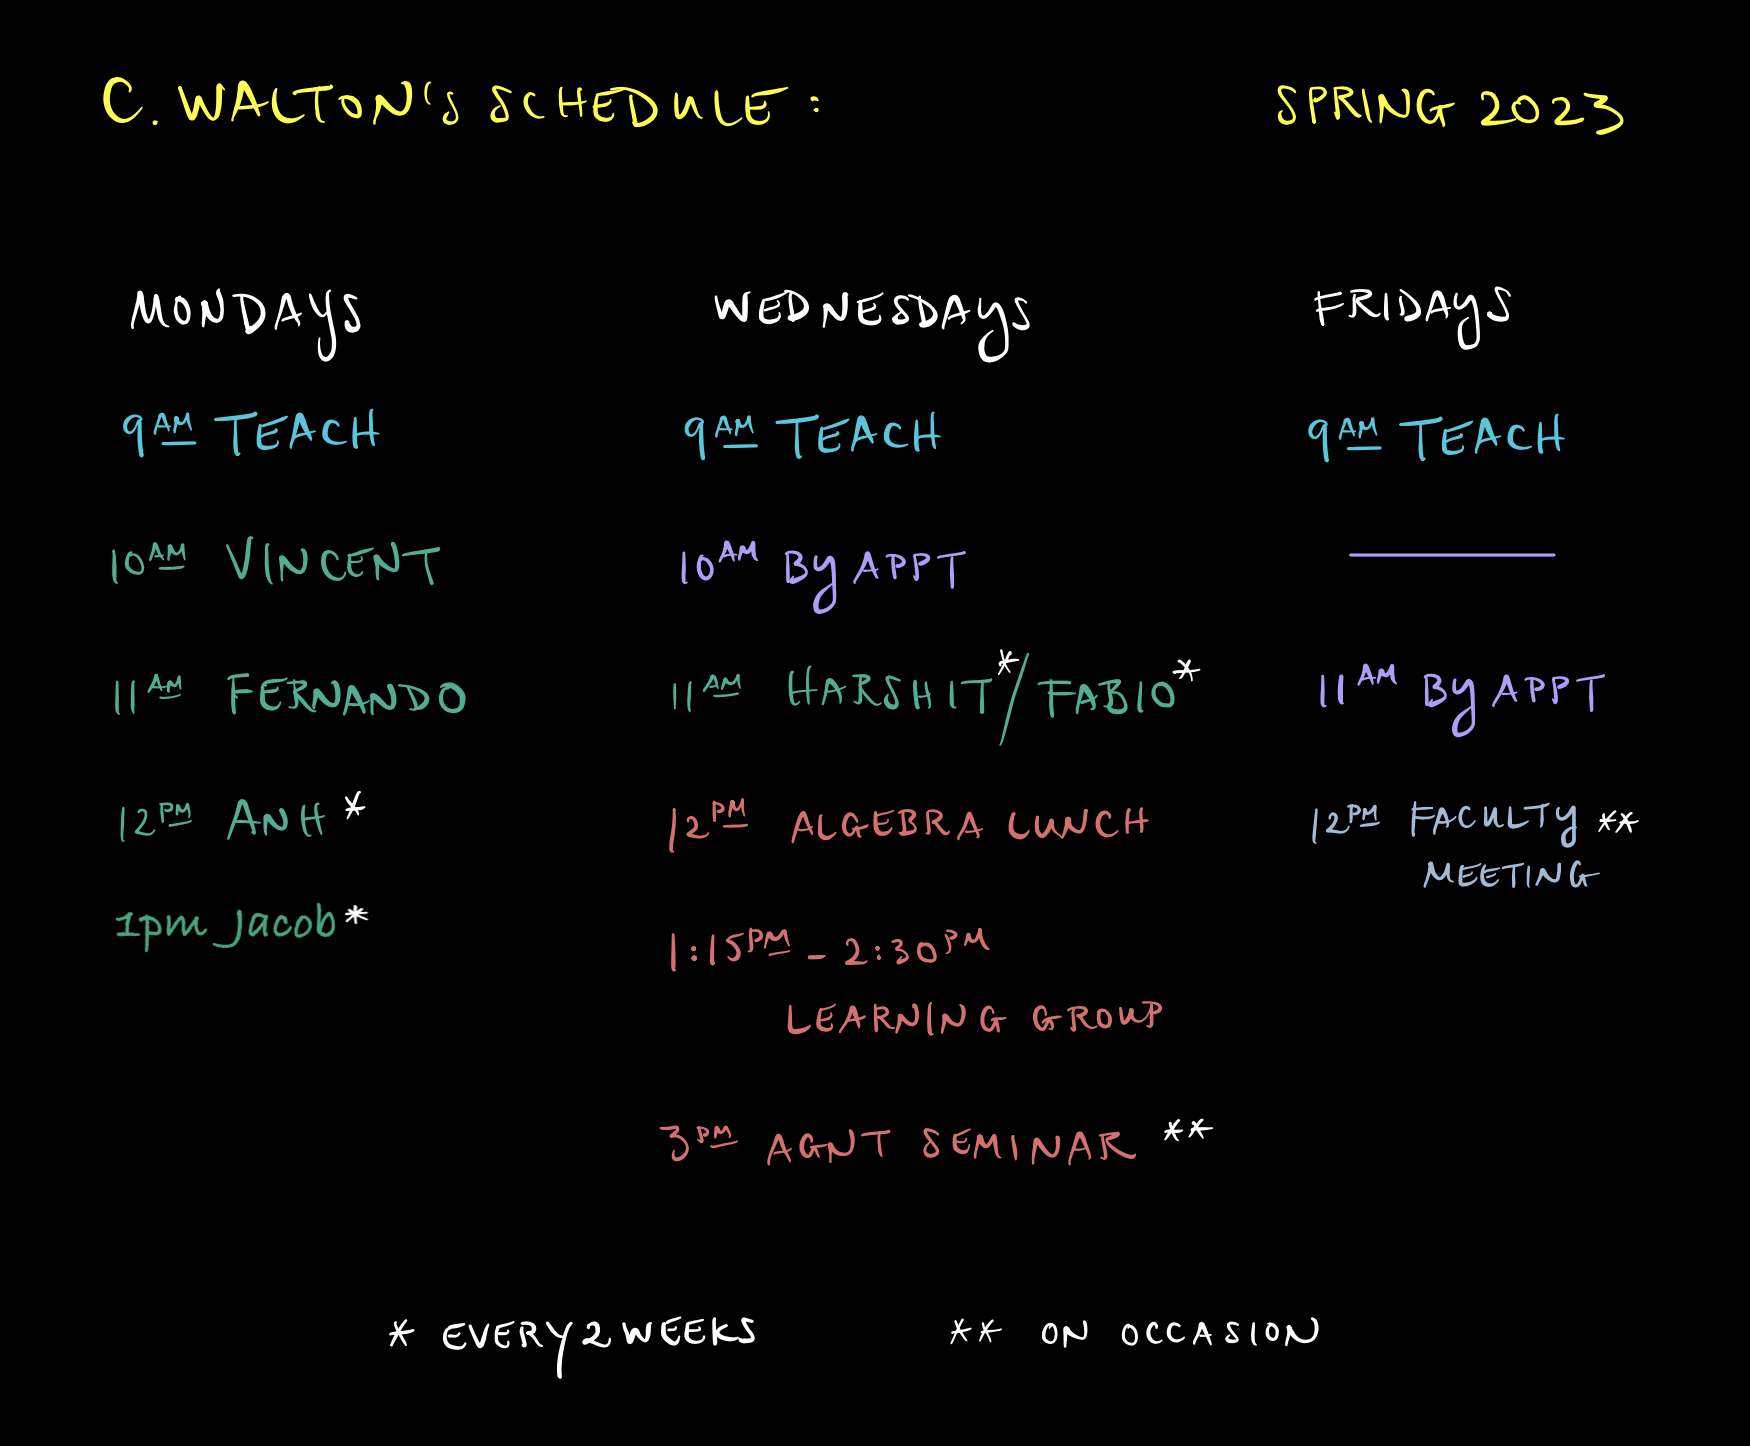 C. WALTON'S SCHEDULE: SPRING 2023
MONDAYS
9AM TEACH
10AM VINCENT
11AM FERNANDO
12PM ANH *
1pm Jacob *
WEDNESDAYS
9AM TEACH
10AM By APPT
11AM HARSHIT*/FABIO*
12PM ALGEBRA LUNCH
1:15PM - 2:30PM
LEARNING GROUP
3PM AGNT SEMINAR **
FRIDAYS
9AM TEACH
11AM By APPT
12PM FACULTY **
MEETING
* EVERY 2 WEEKS
** ON OCCASION